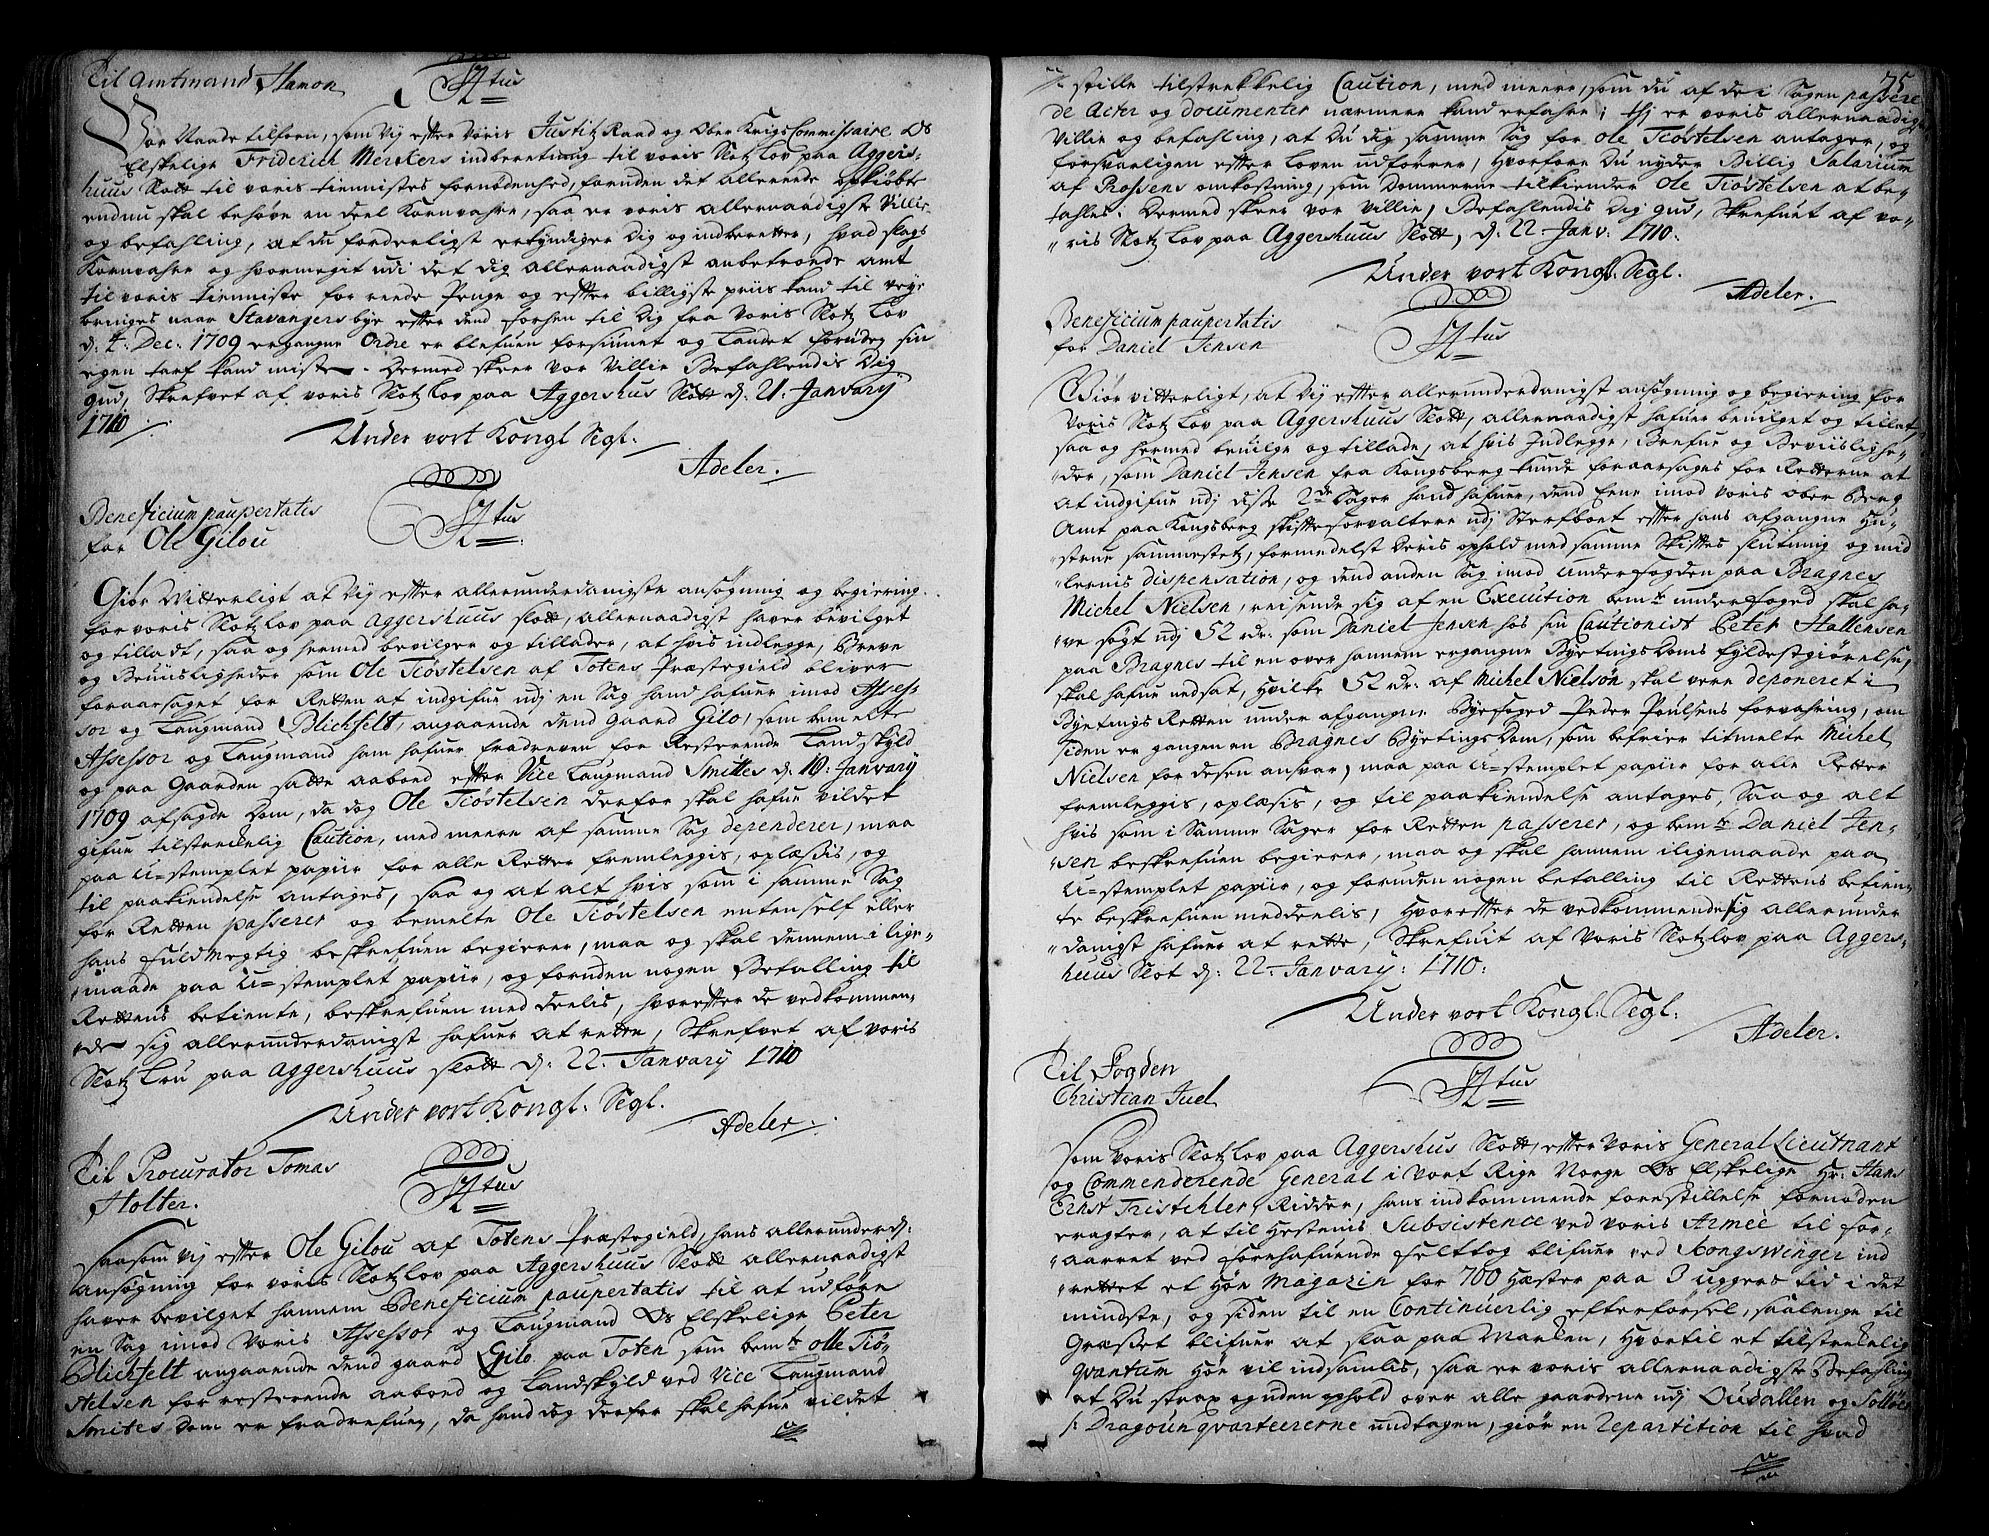 Til Amtmand Hamon
F4tus
Vor Naade tilforn, som Vij efter Voris Justitz Raad og Ober Krigs Commissaire Os
Elskelige Friderich Merckers indberetning til voris Slotz Lov paa Aggers-
huus Slott til voris tienistes fornødenhed, foruden det allereede opkiøbte
endnu skal behøve en deel Kornvahre, saa er voris allernaadigste Villie
og befahling, at du forderligst erkyndiger dig og indberetter, hvad slags
Kornvahre og hvormegit udi det dig allernaadigst anbetroede amt
til voris tienniste for reede Penge og efter billigste priis kand til veye
bringes naar Stavangers bye efter dend forhen til dig fra Voris Slotz Lov
d: 4: Dec: 1709 ergangne Ordre er blefuen forsiunet og Landet forudeg sin
egen tarf kand miste. Dermed skeer vor Villie Befahlendis Dig
Gud, Skrefvet af voris Slotz Lov paa Aggershus Slott d: 21. Januarij
1710
Under vort Kongl Segl.
Adeler.
Beneficium paupertatis
for Ole Gilou
F4tus
Giør Witterligt at Vij efter allerunderdanigste ansøgning og begiering
for voris Slotz Lov paa Aggershuus slott, allernaadigst haver bevilget
og tilladt, saa og hermed bevilger og tillader, at hvis indlegge, Breve
og Beviisligheder som Ole Tiøstelsen af Totens Præstegield bliver
foraarsaget for Retten at indgifue udj en Sag hand hafuer imod Asses-
sor og Laugmand Blichfelt, angaaende dend gaard Gilo, som bemelte
Assessor og Laugmand ham hafuer fradreven for Resterende Landskyld
og paa Gaarden satte aaboed efter Vice Laugmand Smittes d: 10: Januarij
1709 afsagde Dom, da dog Ole Tiøstelsen derfor skal hafue vildet
gifue tilstreckelig Caution, med meere af samme Sag dependerer, maa
paa U-stemplet papiir for alle Retter fremleggis, oplæsis, og
til paakiendelse antages, saa og at alt hvis som i samme Sag
for Retten passerer og bemelte Ole Tiøstelsen enten self eller
hans fuldmegtig beskrefuen begierer, maa og skal dennem i lige-
maade paa U-stemplet papiir, og foruden nogen Betalling til
Rettens betiente, beskrefuen meddeelis, hvorefter de vedkommen-
de sig allerunderdanigst hafuer at rette, Skrefvet af voris
Slotz Lou paa Aggershuus slott d: 22. Januarij 1710
Under vort Kongl: Segl.
Adeler.
Til Procurator Tomas
Holter.
F4tus
Saasom vij efter Ole Gilou af Totens Præstegield, hans allerunderd:
ansøgning for voris Slotz Lov paa Aggershuus Slott allernaadigst
haver bevilget hannem Beneficium paupertatis til at udføre
en Sag imod Voris Assessor og Laugmand Os Elskelige Peter
Blichfelt angaaende dend gaard Gilo paa Toten som bemte olle Tiø-
stelsen for resterende aaboed og Landskyld ved Vice Laugmand
Smites Dom er fradrefuen, da hand dog derfor skal hafue vildet
75
stille tilstrekkelig Caution, med meere, som du af de i Sagen passere
de Acter og documenter nærmere kand erfahre; thj er voris allernaadigste
Villie og befahling, at Du dig samme Sag for Ole Tiøstelsen antager, og
forsvarligen efter Loven udfører, hvorfore Du nyder Billig Salarium
af Prossens omkostning, som Dommerne tilkiender Ole Tiøstelsen at be-
tahles. Dermed skeer vor villie, Befahlendis Dig gud, Skrefuet af vo-
ris Slotz Lov paa Aggershuus Slott, d: 22 Janv: 1710:
Under vort Kongl: Segl.
Adeler.
Beneficium paupertatis
for Daniel Jensen
F4tus
Giør vitterligt, at Vij efter allerunderdanigst ansøgning og begiering for
Voris Slotz Lov paa Aggershuus Slott, allernaadigst hafuer bevilget og tilladt,
saa og hermed beuilge og tillade, at hvis Indlegge, Brefue og Beviislighe-
der, som Daniel Jensen fra Kongsberg kunde foraarsages for Retterne at
at indgifue udj disse 2de Sager hand hafuer, dend Eene imod Voris ober Berg
Amt paa Kongsberg skifteforvaltere udj Sterfboet efter hans afgangne Hu-
strue sammestetz, formedelst Deris ophold med samme Skiftes slutning og mid
lernis dispensation, og dend anden Sag imod underfogden paa Bragnes
Michel Nielsen, reisende sig af en Execution bemte underfoged skal ha-
ve søgt udj 52 rdr: som Daniel Jensen hos sin Cautionist Peter Hallensen
paa Bragnes til en over hannem ergangne Byetings Doms fyldestgiørelse,
skal hafue nedsat, hvilke 52 rdr: af Michel Nielsøn skal vere deponeret i
Byetings Retten under afgangne Byefoged Peder Poulsens forvahring, om
siden er gangen en Bragnes Byetings Dom, som befrier titmelte Michel
Nielsen for desen ansvar, maa paa U-stemplet papiir for alle Retter
fremleggis, oplæsis, og til paakiendelse antages, Saa og alt
hvis som i Samme Sager for Retten passerer, og bemte Daniel Jen-
sen beskrefuen begierer, maa og skal hannem iligemaade paa
U-stemplet papiir, og foruden nogen betalling til Rettens betien-
te beskrefuen meddeelis, hvorefter de vedkommende sig allerunder
danigst hafuer at rette, Skrefuit af Voris Slotz Lov paa Aggers-
huus Slot d: 22. Januarij: 1710:
Under vort Kongl: Segl:
Adeler.
Til Fogden
Christian Juel
F4tus
Som Voris Slotz Lov paa Aggershus Slott, efter Voris General Lieutnant
og Commenderende General i Vort Rige Norge Os Elskelige Hr: Hans
Ernst Tristchler, Ridder, hans indkommende forestillelse fornøden
eragter, at til Hestenis Subsistence ved voris Armeè til for-
aarret ved forehafuende felttog blifuer ved Kongswinger ind
rettet et Høe Magazin for 700 Hæster paa 3 uggers tid i det
mindste, og siden til en Continuerlig efterforsel, saalenge til
Græsset blifuer at slaa paa Marken, hvortil et tilstreckelig
qvantum Høe vil indsamlis, saa er voris allernaadigste Befahling
at Du strax og uden ophold over alle gaardene udj Oudallen og Solløer
/: Dragoun qvarteererne undtagen, giør en Repartition til hvad